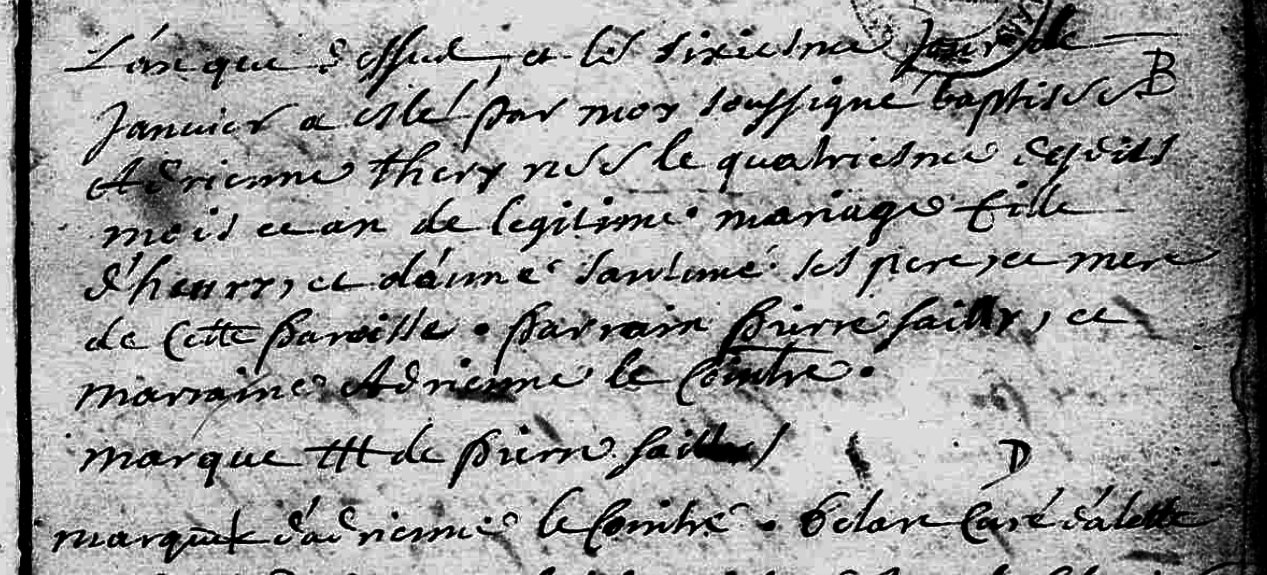 L'an que dessus, et le sixiesme jour de
B
Janvier a esté par moy soussigné baptisée
Adrienne thery née le quatriesme desdits
mois et an de legitime mariage fille
d'henry, et d'anne santerne ses pere, et mere
de cette paroisse. parrain pierre sailly, et
marraine Adrienne le Cointre.
marque de pierre sailly
D
marque d'adrienne le Cointre. Curé d'alette